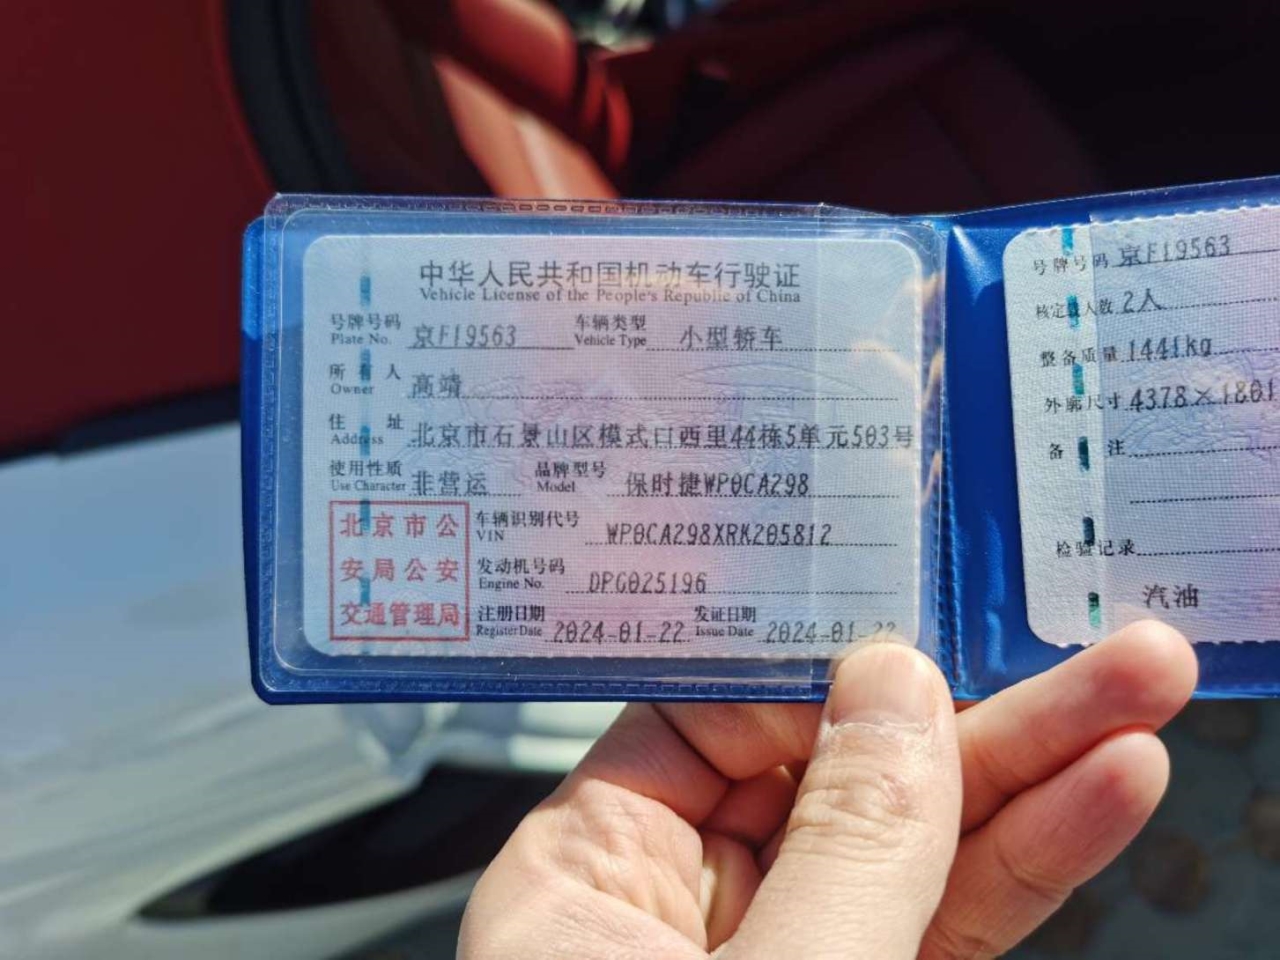 中华人民共和国机动车行驶证
Vehicle License of the People's Republic of China
号牌号码 京F19563 车辆类型 小型轿车
Plate No. Vehicle Type
所有人 高靖
Owner
住址 北京市石景山区模式口西里44栋5单元503号
Address
使用性质 非营运 品牌型号 保时捷WP0CA298
Use Character Model
北京市公
安局公安
交通管理局
车辆识别代号 WP0CA298XRK205812
VIN
发动机号码 DPG025196
Engine No.
注册日期 2024-01-22 发证日期 2024-01-22
Register Date Issue Date
号牌号码 京F19563
核定载人数 2人
整备质量 1441kg
外廓尺寸 4378×1801
备注
检验记录
汽油